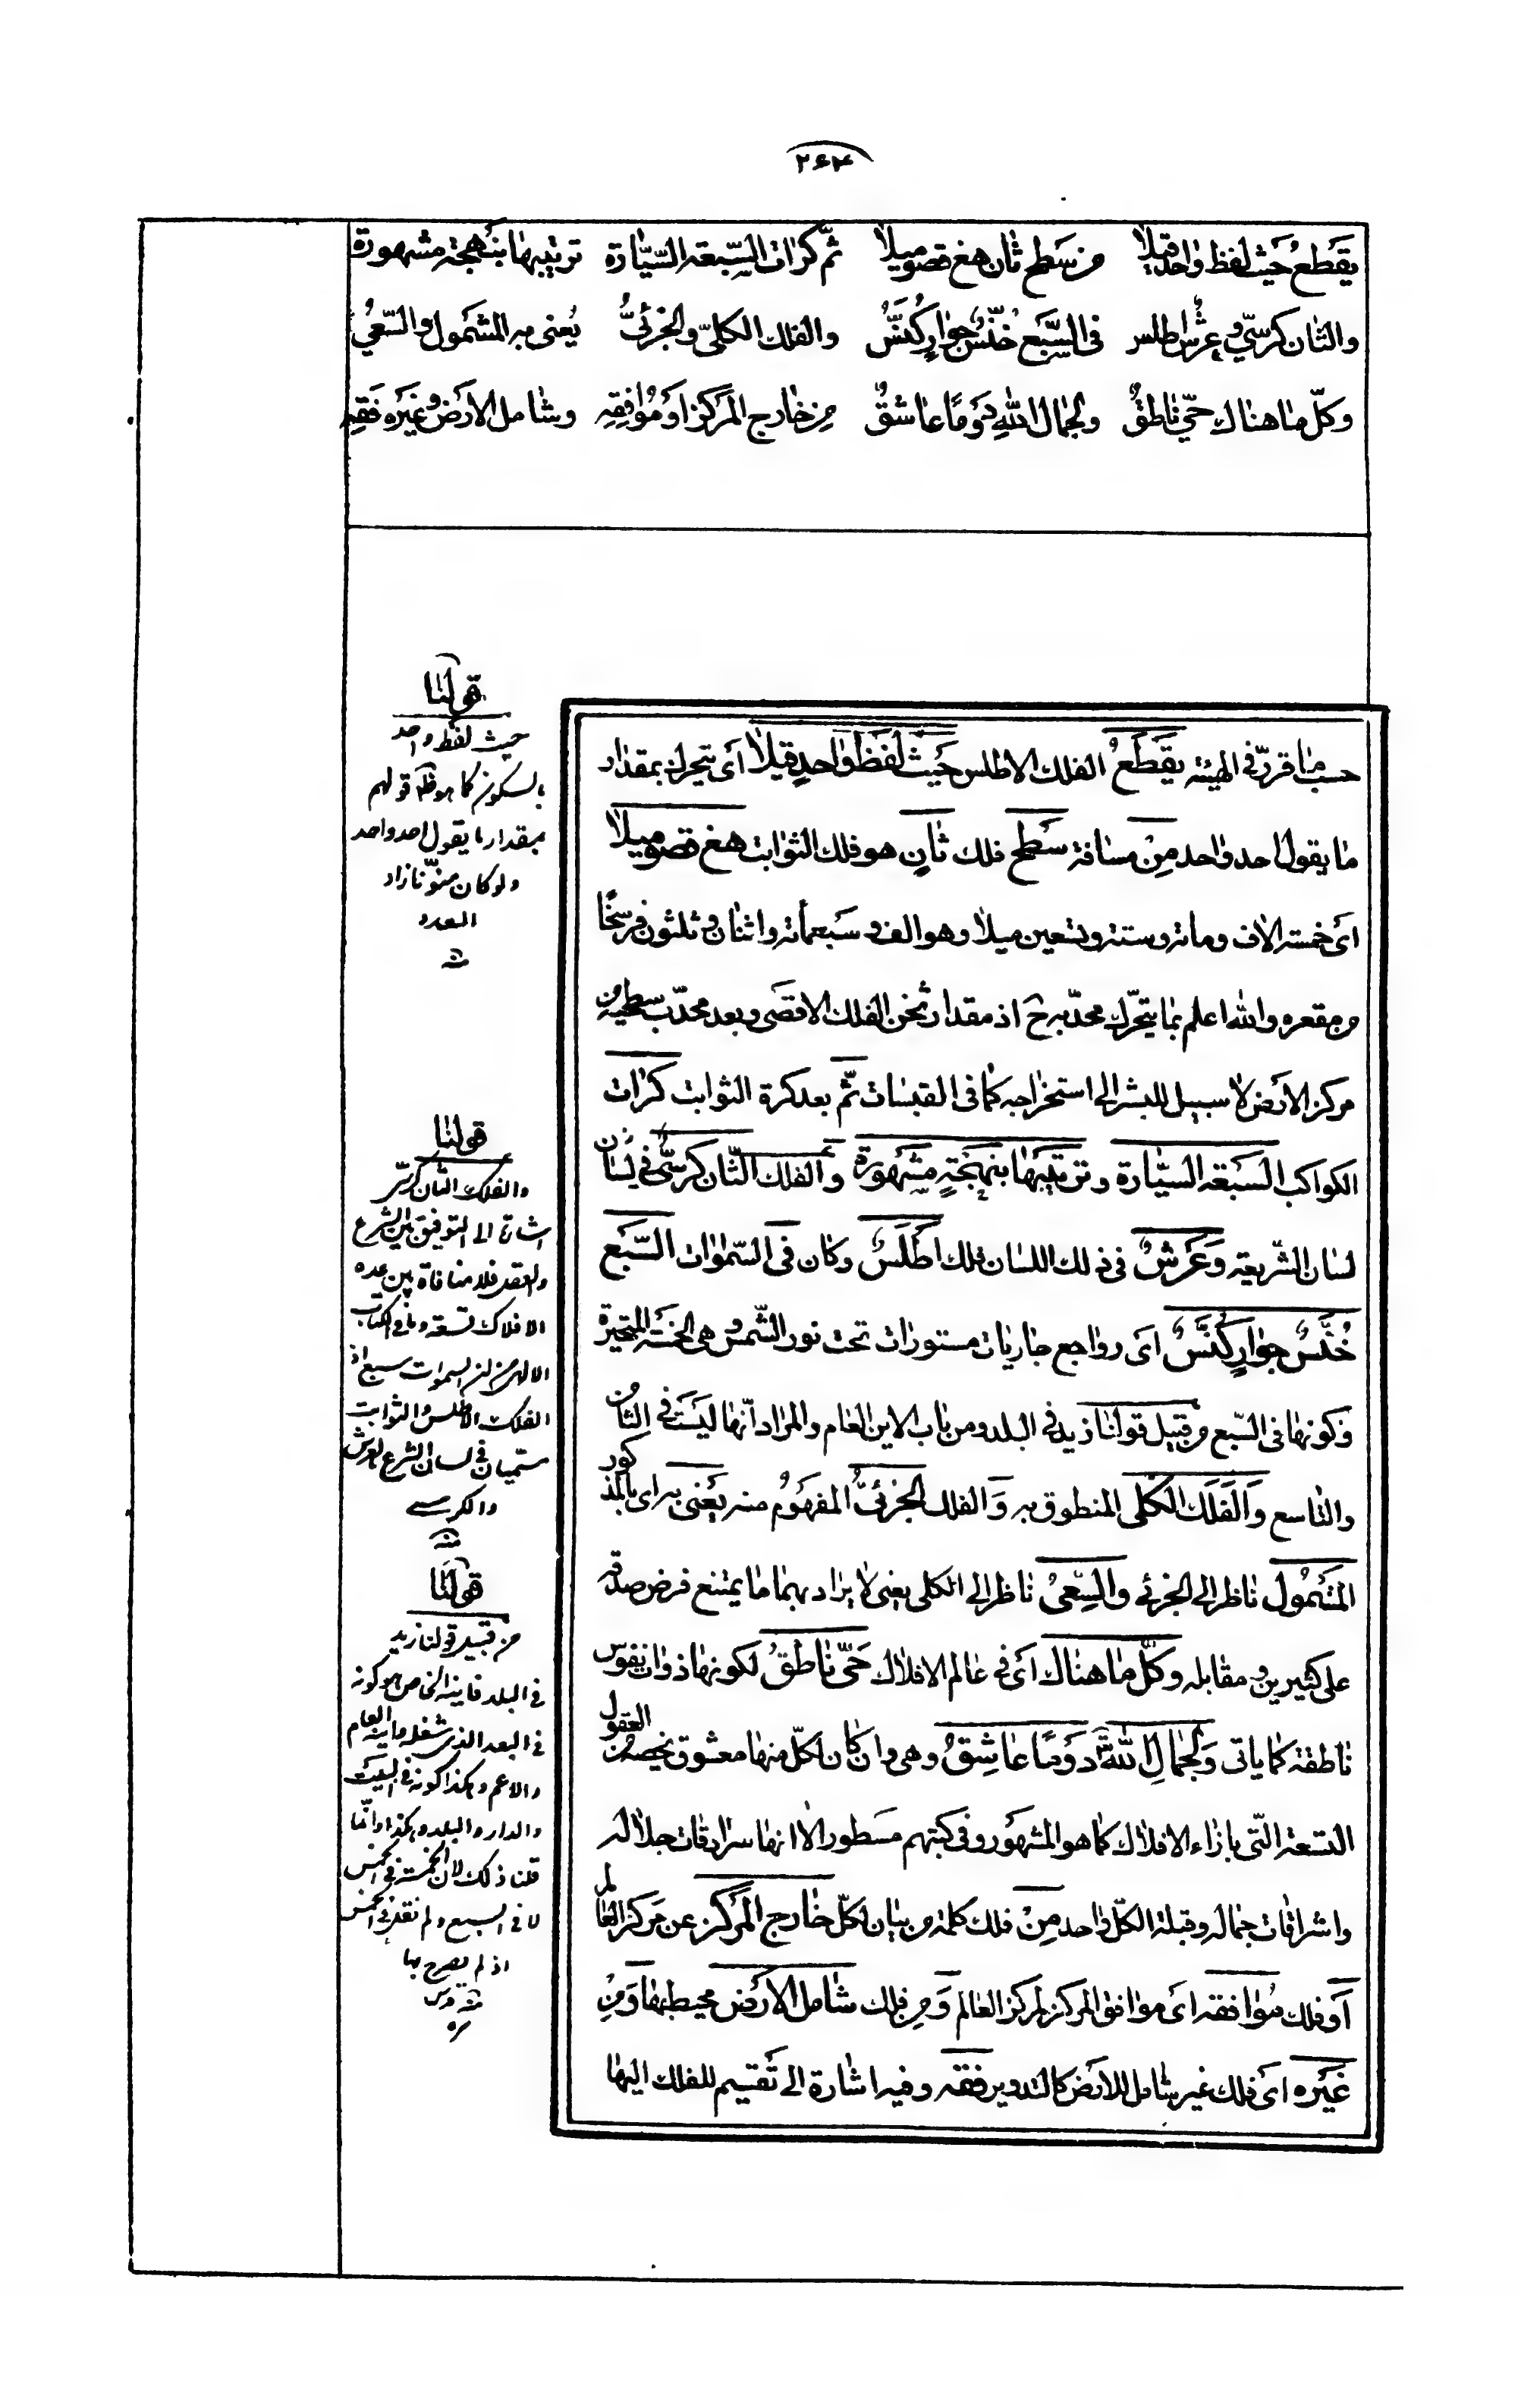 ۲۶۴
يقطع حيث لفظ واحد قيلا من سطح ثان هغ قصو ميلا ثمّ كرات السّبعة السّيّارة ترتيبها بنهجة مشهورة
والثان كرسيّ وعرش اطلس في السّبع خنّس جوار كنّس والفلك الكلّيّ والجزئيّ يعنى به المشمول والسّعيّ
وكلّ ما هناك حيّ ناطق ولجمال الله دوما عاشق من خارج المركز او موافقه وشامل الارض وغيره فقه
حسب ما قرّر في الهيئة يقطع الفلك الاطلس حيث لفظ واحد قيلا اى يتحرك بمقدار
ما يقول احد واحد من مسافة سطح فلك ثان هو فلك الثوابت هغ قصو ميلا
اى خمسة الاف ومائة وستة وتسعين ميلا وهو الف وسبعمأة واثنان وثلثون فرسخا
من مقعره والله اعلم بما يتحرّك محدّبه ح اذ مقدار ثخن الفلك الاقصى وبعد محدّب سطحيه من
مركز الارض لا سبيل للبشر الى استخراجه كما في القبسات ثمّ بعد كرة الثوابت كرات
الكواكب السبعة السيّارة وترتيبها بنهجة مشهورة والفلك الثّان كرسيّ في لسان
لسان الشّريعة وعرش في ذلك اللسان فلك اطلس وكان في السّموات السّبع
خنّس جوار كنّس اى رواجع جاريات مستورات تحت نور الشّمس وهى الخمسة المتحيرة
وكونها في السّبع من قبيل قولنا زيد في البلد ومن باب الاين العام والمراد انّها ليست في الثامن
والتاسع والفلك الكلّي المنطوق به والفلك الجزئيّ المفهوم منه يعنى به اى بالمذكور
المشمول ناظر الى الجزئي والسّعيّ ناظر الى الكلى يعنى لا يراد بهما ما يمتنع فرض صدقه
على كثيرين ومقابله وكلّ ما هناك اى في عالم الافلاك حيّ ناطق لكونها ذوات نفوس
ناطقة كما ياتى ولجمال الله دوما عاشق وهى وان كان لكلّ منها معشوق يخصه من العقول
التسعة التّى بازاء الافلاك كما هو المشهور وفي كتبهم مسطور الا انها سرادقات جلاله
واشراقات جماله وقبلة الكلّ واحد من فلك كلمة من بيان لكلّ خارج المركز عن مركز العالم
او فلك موافقه اى موافق المركز لمركز العالم ومن فلك شامل الارض محيط بها ومن
غيره اى فلك غير شامل للارض كالتدوير فقه وفيه اشارة الى تقسيم للفلك اليها
قولنا
حيث لفظ واحد
بالسكون كما هو قولهم
بمقدار ما يقول احد واحد
ولو كان منوّنا زاد
العدد
منه
قولنا
والفلك الثان كرسيّ
اشارة الى التوفيق بين الشرع
والعقل فلا منافاة بين عده
الافلاك تسعة وما في الكتاب
الالهى من ان السموات سبع اذ
الفلك الاطلس والثوابت
مسميان في لسان الشرع بالعرش
والكرسي
منه
قولنا
من قبيل قولنا زيد
في البلد فاينه الخاص هو كونه
في البعد الذى شغله واينه العام
والاعم وهكذا كونه في البيت
والدار والبلد وهكذا وانّما
قلنا ذلك لان الخمسة في الخمس
لا في السبع ولم نقل في الخمس
اذ لم يصرح بها
منه قدس
سره